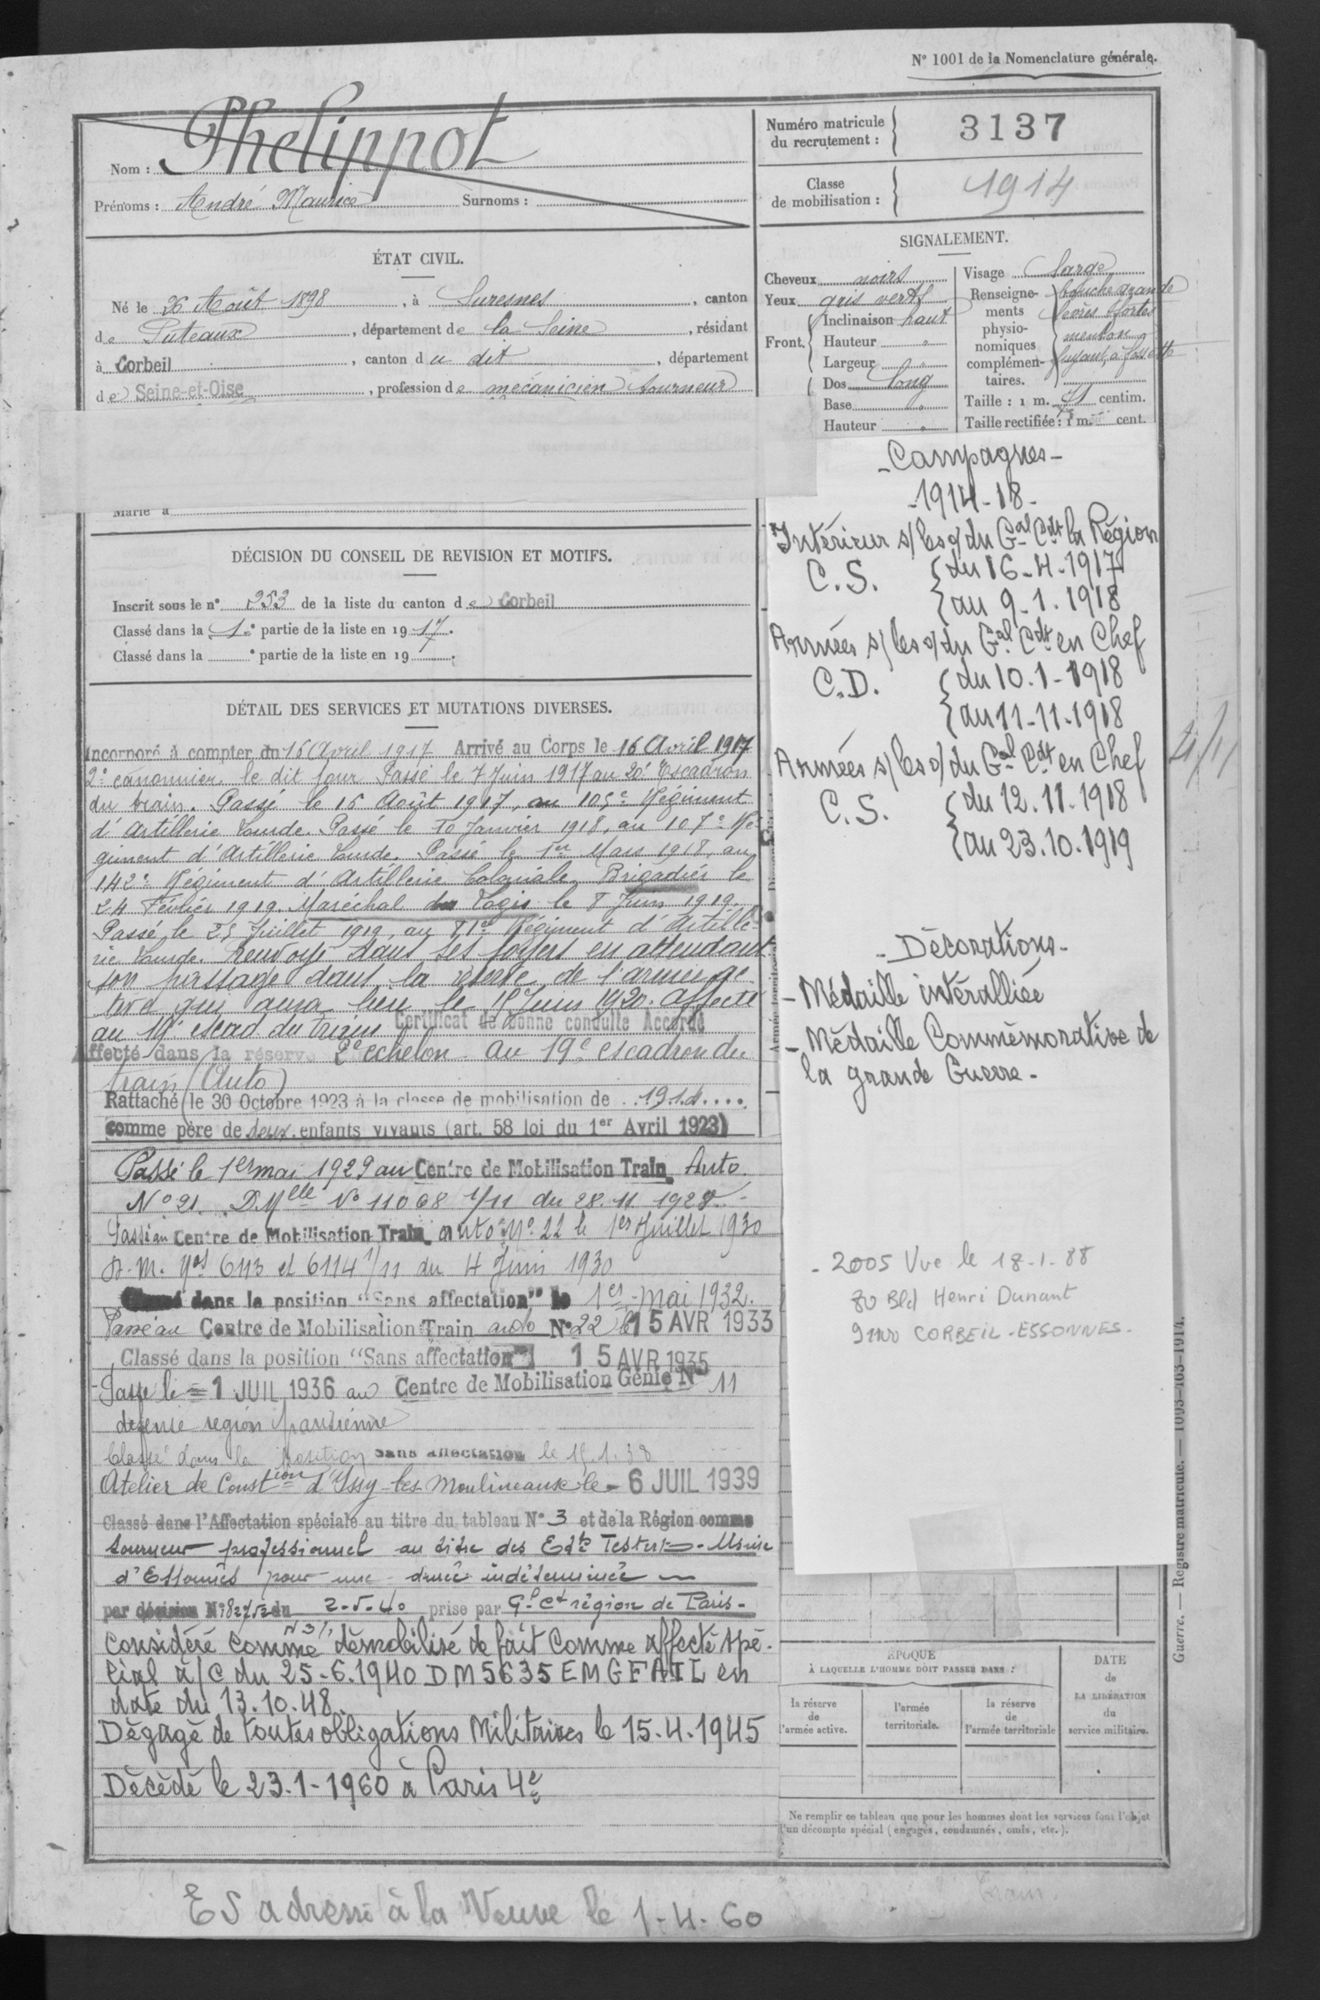 N° 1001 de la Nomenclature générale.
Nom : Phelippot
Prénoms : André Maurice Surnoms :
Numéro matricule du recrutement : 3137
Classe de mobilisation : 1914
ÉTAT CIVIL.
Né le 26 Août 1898, à Suresnes, canton
de Puteaux, département de la Seine, résidant
à Corbeil, canton du dit, département
de Seine-et-Oise, profession de mécanicien tourneur
Marié à
SIGNALEMENT.
Cheveux noirs
Yeux gris verts
Front. Inclinaison haut
Hauteur "
Largeur "
Dos long
Base "
Hauteur "
Visage large
Renseignements physionomiques complémentaires. bouche grande
lèvres fortes
menton
fuyant, à fossette
Taille : 1 m. 71 centim.
Taille rectifiée : 1 m. cent.
DÉCISION DU CONSEIL DE REVISION ET MOTIFS.
Inscrit sous le n° 253 de la liste du canton de Corbeil
Classé dans la 1e partie de la liste en 1917.
Classé dans la e partie de la liste en 19 .
DÉTAIL DES SERVICES ET MUTATIONS DIVERSES.
Incorporé à compter du 16 Avril 1917 Arrivé au Corps le 16 Avril 1917
2e canonnier le dit jour Passé le 7 Juin 1917 au 20e Escadron
du train. Passé le 15 Août 1917, au 105e Régiment
d'Artillerie Lourde. Passé le 10 Janvier 1918, au 107e Ré-
giment d'Artillerie Lourde. Passé le 1er Mars 1918, au
142e Régiment d'Artillerie Coloniale. Brigadier le
24 Février 1919. Maréchal des Logis le 8 Juin 1919.
Passé le 25 Juillet 1919, au 81e Régiment d'Artille-
rie Lourde. Renvoyé dans ses foyers en attendant
son passage dans la réserve de l'armée ac-
tive qui aura lieu le 15 Juin 1920. affecté
au 19e escad du train. Certificat de Bonne conduite Accordé
Affecté dans la réserve 2e échelon au 19e escadron du
train (Auto)
Rattaché le 30 Octobre 1923 à la classe de mobilisation de 1914....
comme père de deux enfants vivants (art. 58 loi du 1er Avril 1923)
Passé le 1er mai 1929 au Centre de Mobilisation Train Auto
N° 21. D.Mlle N° 11068 1/11 du 28.11.1928.
Passé au Centre de Mobilisation Train auto N° 22 le 1er Juillet 1930
D.M. Nos 6113 et 6114 1/11 du 4 Juin 1930
Classé dans la position "Sans affectation" le 1er mai 1932.
Passé au Centre de Mobilisation Train auto N° 22 le 15 AVR 1933
Classé dans la position "Sans affectation" 15 AVR 1935
Passé le 1 JUIL 1936 au Centre de Mobilisation Génie N° 11
défense région parisienne
Classé dans la position sans affectation le 15.1.38
Atelier de Constion d'Issy-les-Moulineaux le 6 JUIL 1939
Classé dans l'Affectation spéciale au titre du tableau N° 3 et de la Région comme
tourneur professionnel au titre des Ets Testut - Usine
d'Essonnes pour une durée indéterminée
par décision N° 82752 du 2-5-40 prise par Gl Ct région de Paris.
Considéré comme démobilisé de fait comme affecté spé-
cial à/c du 25-6.1940 DM 5635 EMGFATL en
date du 13.10.48.
Dégagé de toutes obligations Militaires le 15.4.1945
Décédé le 23.1-1960 à Paris 4e
ES adressé à la Veuve le 1-4-60
- Campagnes -
- 1914-18 -
Intérieur s/les o/du Gal Cdt la Région
C.S. { du 16-4-1917
{ au 9-1.1918
Armées s/les o/du Gal Cdt en Chef
C.D. { du 10.1-1918
{ au 11-11-1918
Armées s/les o/du Gal Cdt en Chef
C.S. { du 12.11.1918
{ au 23.10.1919
- Décorations -
- Médaille intéralliée
- Médaille Commémorative de
la grande Guerre -
- 2005 Vve le 18-1-88
80 Bld Henri Dunant
91100 CORBEIL-ESSONNES.
ÉPOQUE
À LAQUELLE L'HOMME DOIT PASSER DANS :
la réserve de l'armée active.
l'armée territoriale.
la réserve de l'armée territoriale
DATE de LA LIBÉRATION du service militaire.
Ne remplir ce tableau que pour les hommes dont les services font l'objet
d'un décompte spécial (engagés, condamnés, omis, etc.).
Guerre. — Registre matricule. — 1093-163-1914.